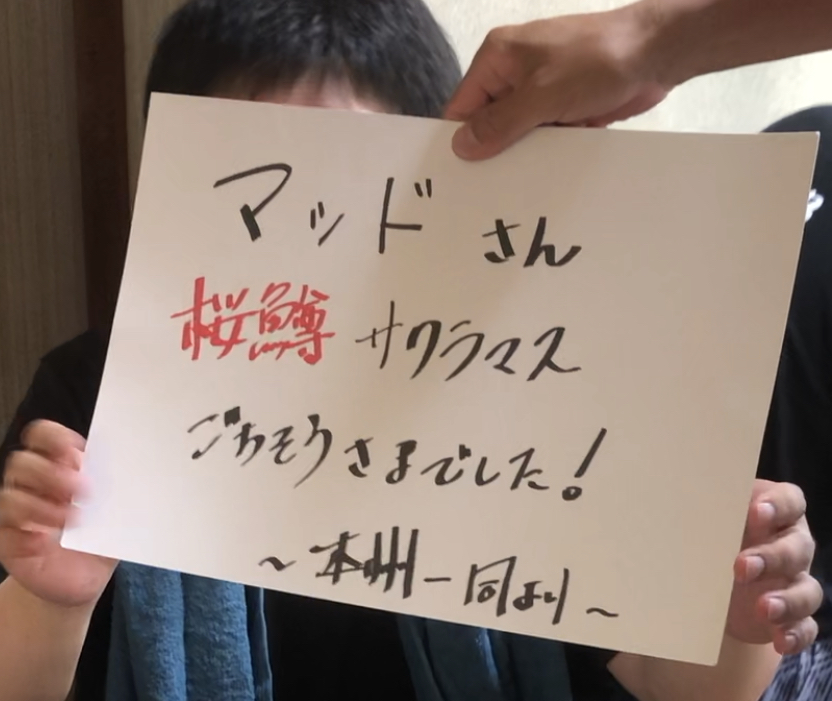 マッド さん
桜鱒 サクラマス
ごちそうさまでした!
～本州一同より～